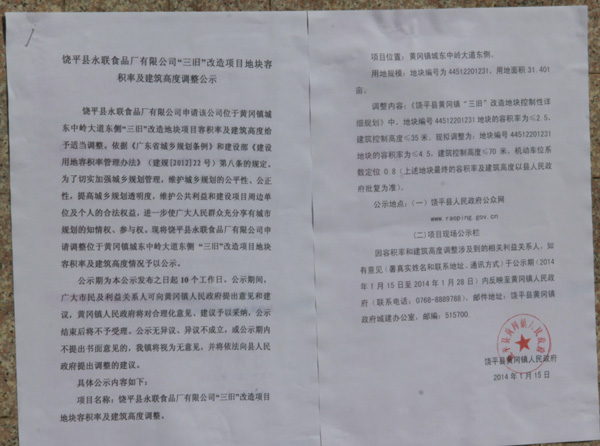 饶平县永联食品厂有限公司“三旧”改造项目地块容
积率及建筑高度调整公示
饶平县永联食品厂有限公司申请该公司位于黄冈镇城
东中岭大道东侧“三旧”改造地块项目容积率及建筑高度给
予适当调整，依据《广东省城乡规划条例》和建设部《建设
用地容积率管理办法》（建规[2012]22 号）第八条的规定。
为了切实加强城乡规划管理，维护城乡规划的公平性、公正
性，提高城乡规划透明度，维护公共利益和建设项目周边单
位及个人的合法权益，进一步使广大人民群众充分享有城市
规划的知情权、参与权。现将饶平县永联食品厂有限公司申
请调整位于黄冈镇城东中岭大道东侧 “三旧”改造项目地块
容积率及建筑高度情况予以公示。
公示期为本公示发布之日起 10 个工作日。公示期间，
广大市民及利益关系人可向黄冈镇人民政府提出意见和建
议，黄冈镇人民政府将对合理化意见、建议予以采纳。公示
结束后将不予受理。公示无异议、异议不成立，或公示期内
不提出书面意见的，我镇将视为无意见，并将依法向县人民
政府提出调整的建议。
具体公示内容如下：
项目名称：饶平县永联食品厂有限公司“三旧”改造项目
地块容积率及建筑高度调整。
项目位置：黄冈镇城东中岭大道东侧。
用地规模：地块编号为 44512201231，用地面积 31.401
亩。
调整内容：《饶平县黄冈镇“三旧”改造地块控制性详
细规划》中，地块编号 44512201231 地块的容积率为≤2.5，
建筑控制高度≤35 米。现拟调整为：地块编号 44512201231
地块的容积率为≤4.5，建筑控制高度≤70 米，机动车位系
数定位 0.8（上述地块最终的容积率及建筑高度以县人民政
府批复为准）。
公示地点：（一）饶平县人民政府公众网
www.raoping.gov.cn
（二）项目现场公示栏
因容积率和建筑高度调整涉及到的相关利益关系人，如
有意见（署真实姓名和联系地址、通讯方式）于公示期（2014
年 1 月 15 日至 2014 年 1 月 28 日）内反映至黄冈镇人民政
府（联系电话：0768-8889788），邮件地址：饶平县黄冈镇
政府城建办公室，邮编：515700
饶平县黄冈镇人民政府
2014 年 1 月 15 日